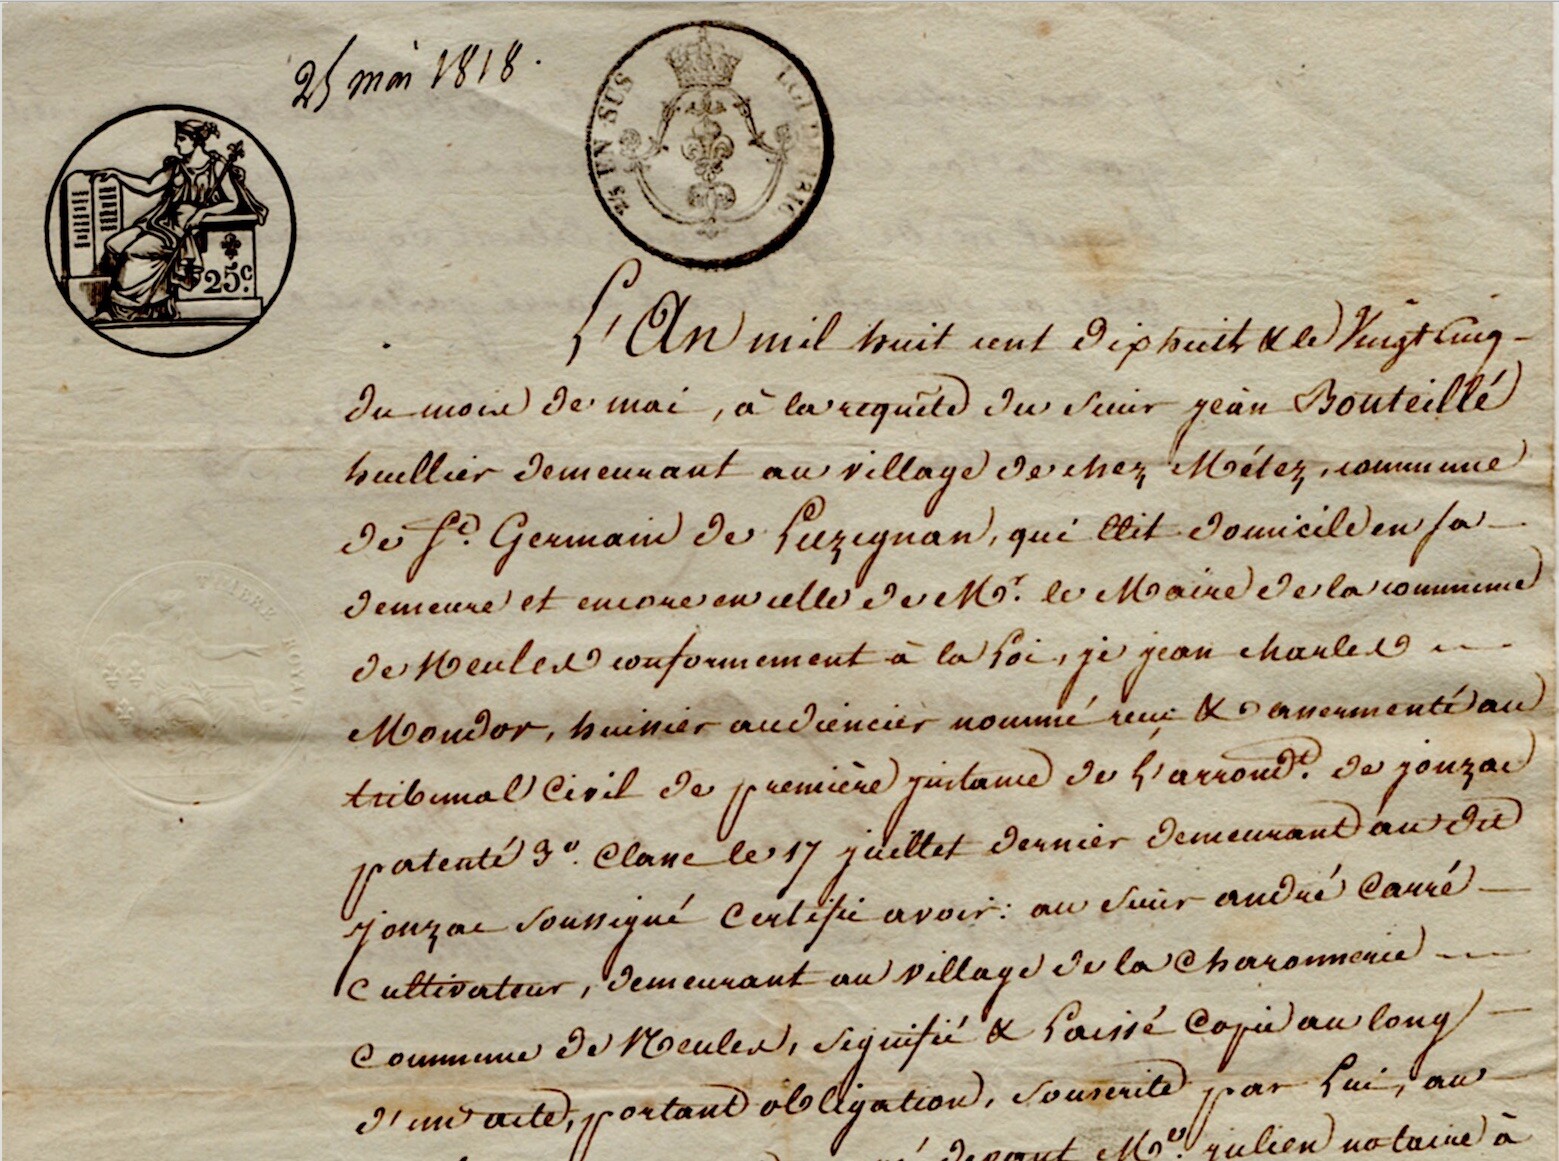 25 mai 1818.
2/5 EN SUS
LOI DE 1816
25c.
TIMBRE ROYAL
L'An mil huit cent dix huit & le Vingt Cinq –
du mois de mai, à la requête du sieur jean Bouteillé
huillier demeurant au village de chez Métez, commune
de St. Germain de Luzignan, qui Elit domicile en sa –
demeure et encore en celle de Mr. le Maire de la commune
de Neulles conformement à la Loi, je jean charles –
Moudor, huissier audiencier nommé reçu & assermenté au
tribunal Civil de première instance de L'arrondt. de jonzac
patenté 3e. Classe le 17 juillet dernier demeurant au dit
jonzac soussigné Certifie avoir: au sieur andré Carré –
Cultivateur, demeurant au village de la Charonnerie –
Commune de Neulles, signifié & Laissé Copie au long –
d'un acte, portant obligation, souscrite par Lui, au –
devant Me. julien notaire à